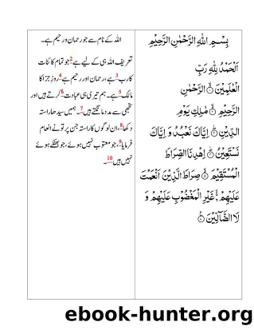 بِسْمِ اللّٰهِ الرَّحْمٰنِ الرَّحِيْمِ
اَلْحَمْدُ لِلّٰهِ رَبِّ
الْعٰلَمِيْنَ ۙ الرَّحْمٰنِ
الرَّحِيْمِ ۙ مٰلِكِ يَوْمِ
الدِّيْنِ ؕ اِيَّاكَ نَعْبُدُ وَ اِيَّاكَ
نَسْتَعِيْنُ ؕ اِهْدِنَا الصِّرَاطَ
الْمُسْتَقِيْمَ ۙ صِرَاطَ الَّذِيْنَ اَنْعَمْتَ
عَلَيْهِمْ ۙ غَيْرِ الْمَغْضُوْبِ عَلَيْهِمْ وَ
لَا الضَّآلِّيْنَ
اللہ کے نام سے جو رحمان و رحیم ہے۔
تعریف اللہ ہی کے لیے ہے2 جو تمام کائنات
کا رب3 ہے، رحمان اور رحیم ہے4، روزِ جزا کا
مالک5 ہے۔ ہم تیری ہی عبادت6 کرتے ہیں اور
تجھی سے مدد مانگتے ہیں7۔ ہمیں سیدھا راستہ
دکھا8، ان لوگوں کا راستہ جن پر تو نے انعام
فرمایا9، جو معتوب نہیں ہوئے، جو بھٹکے ہوئے
نہیں ہیں10۔
ebook-hunter.org